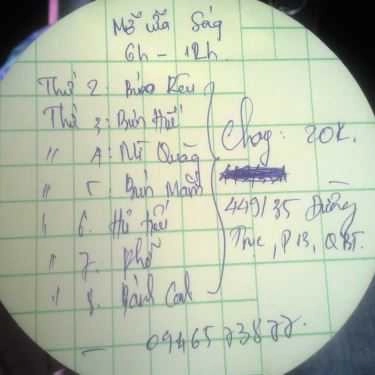 Mở cửa Sáng
6h - 12h.
Thứ 2: Bún Riêu
Thứ 3: Bún Huế
" 4: Mì Quảng
" 5: Bún Mắm
" 6. Hủ tiếu
" 7. Phở
" 8. Bánh Canh
Chay: 20K.
449/35 Trường
P13, QBT.
- 0946523877.